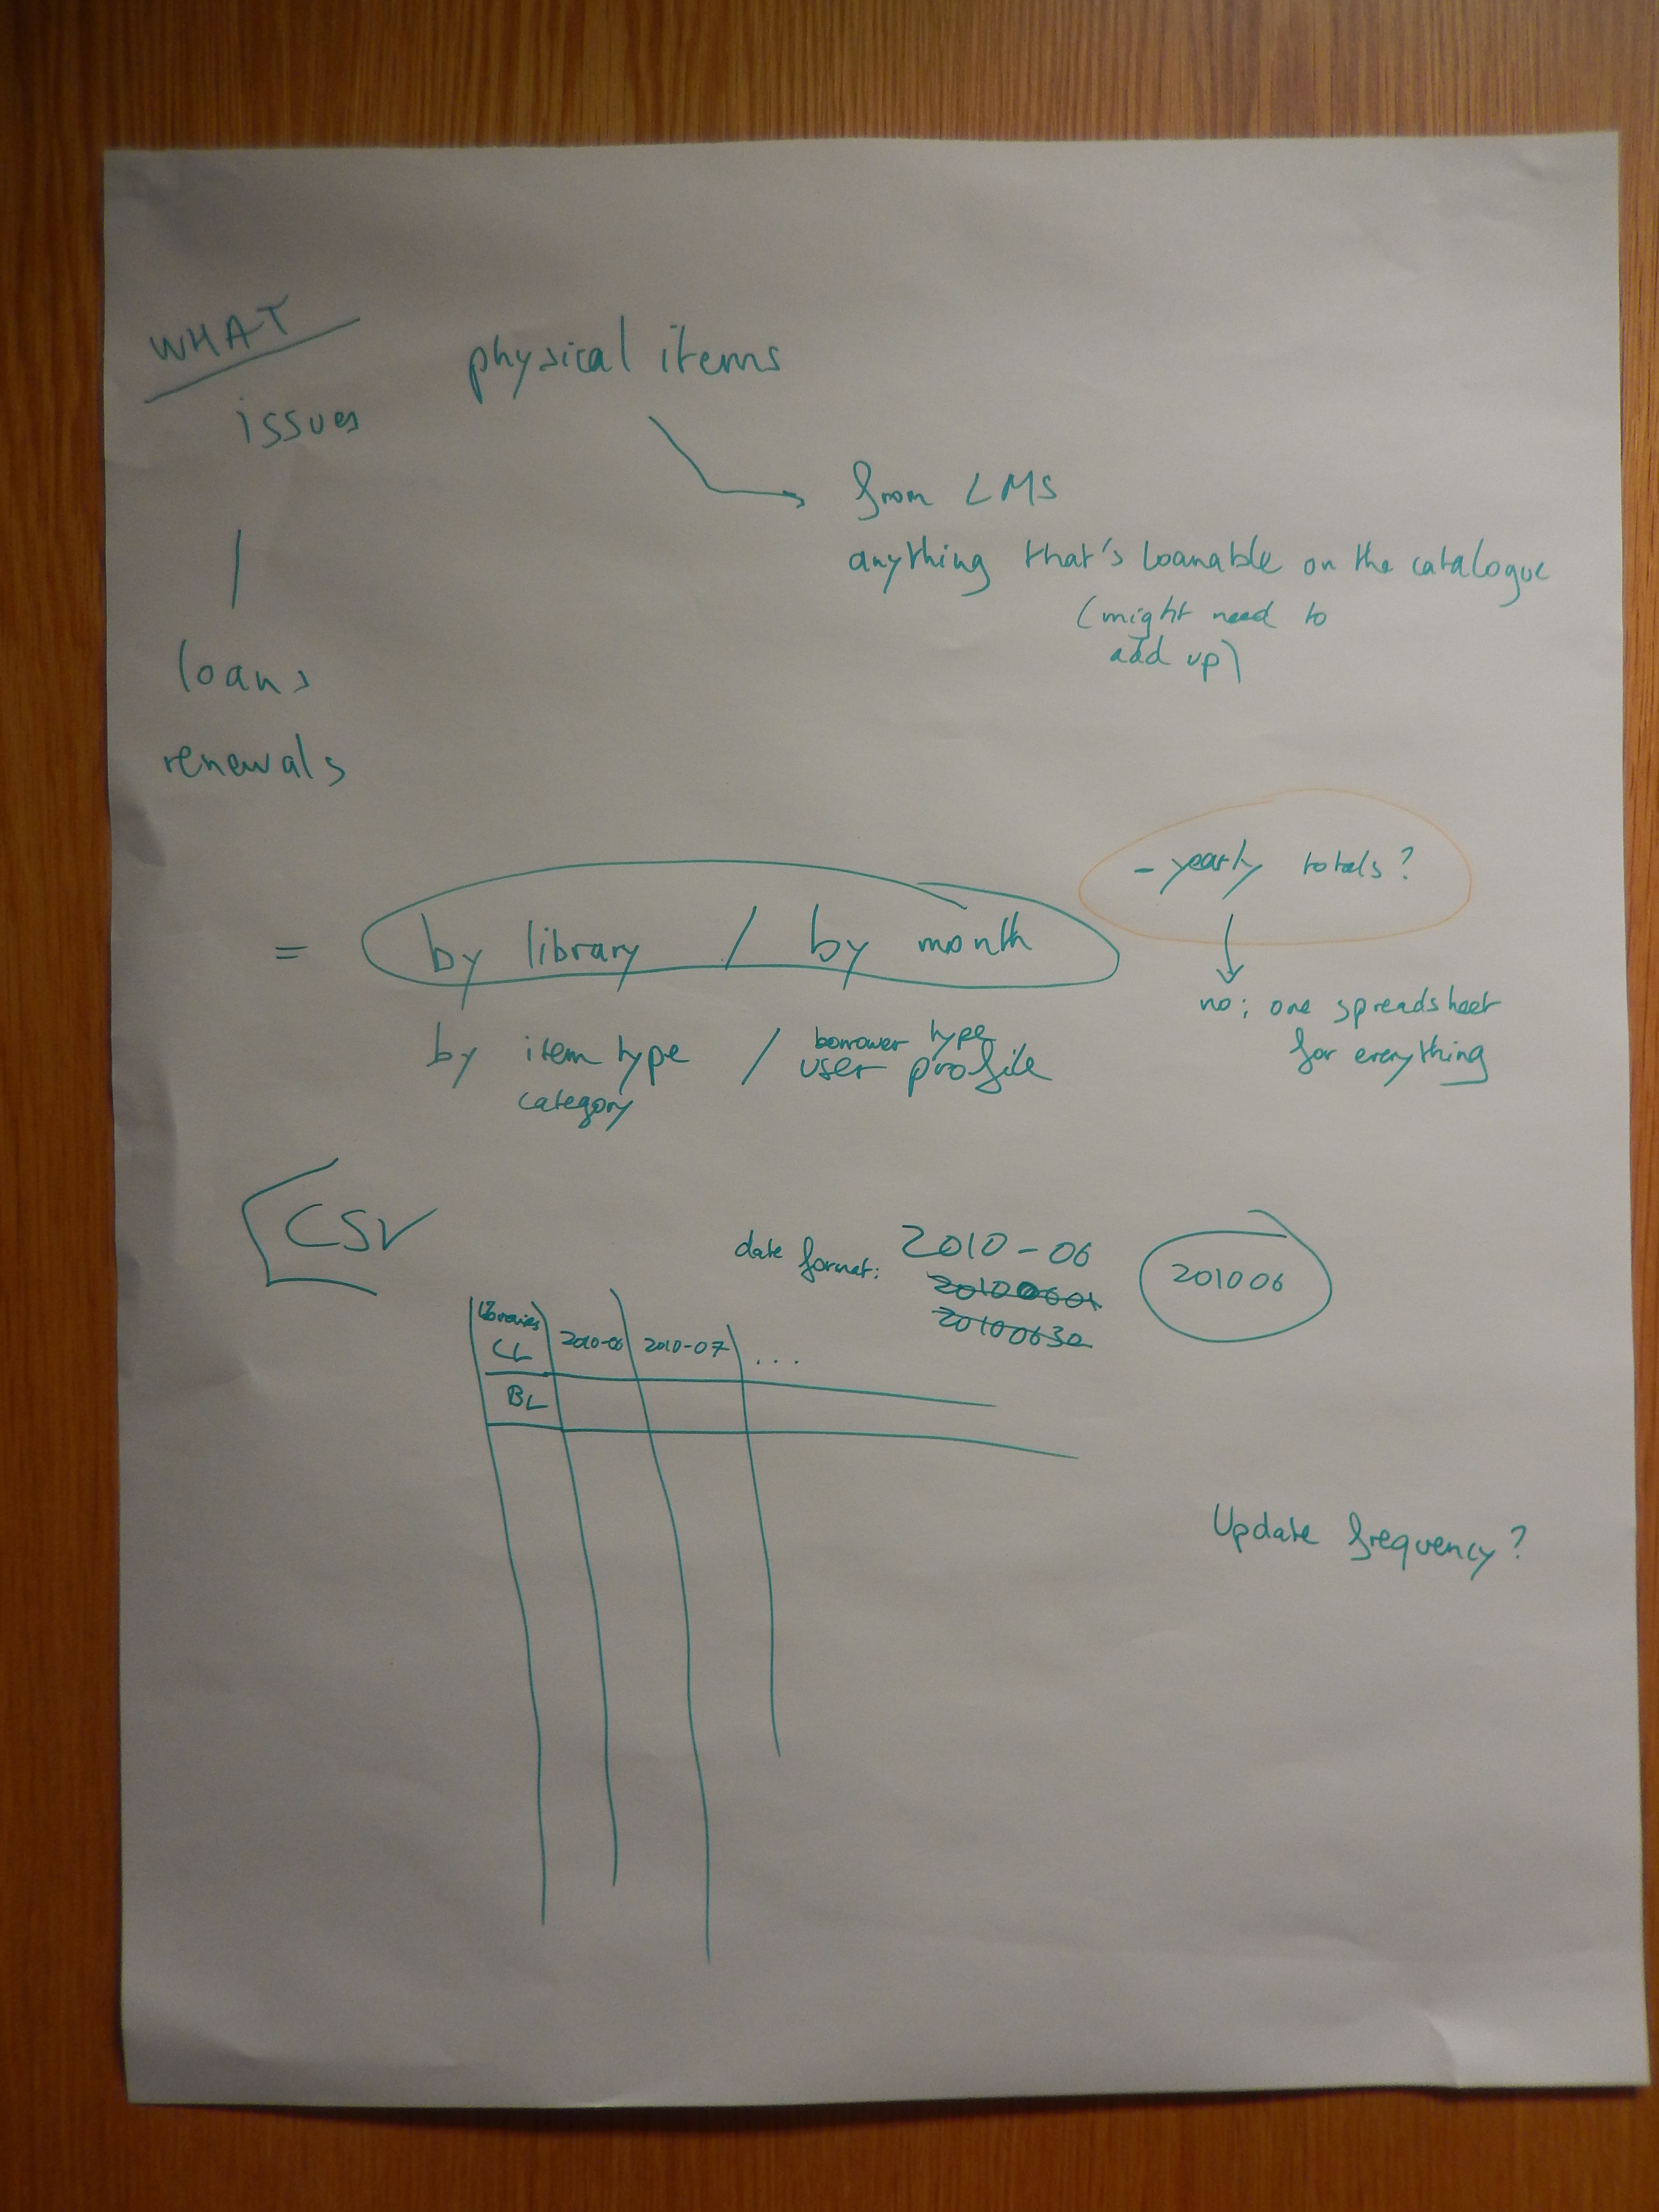 WHAT
issues
physical items
from LMS
anything that's loanable on the catalogue
(might need to
add up)
loans
renewals
- yearly totals?
= by library / by month
no; one spreadsheet
for everything
borrower type
by item type / user profile
category
CSV
date format: 2010-06
20100601
20100630
201006
libraries
CL 2010-06 2010-07 ...
BL
Update frequency?